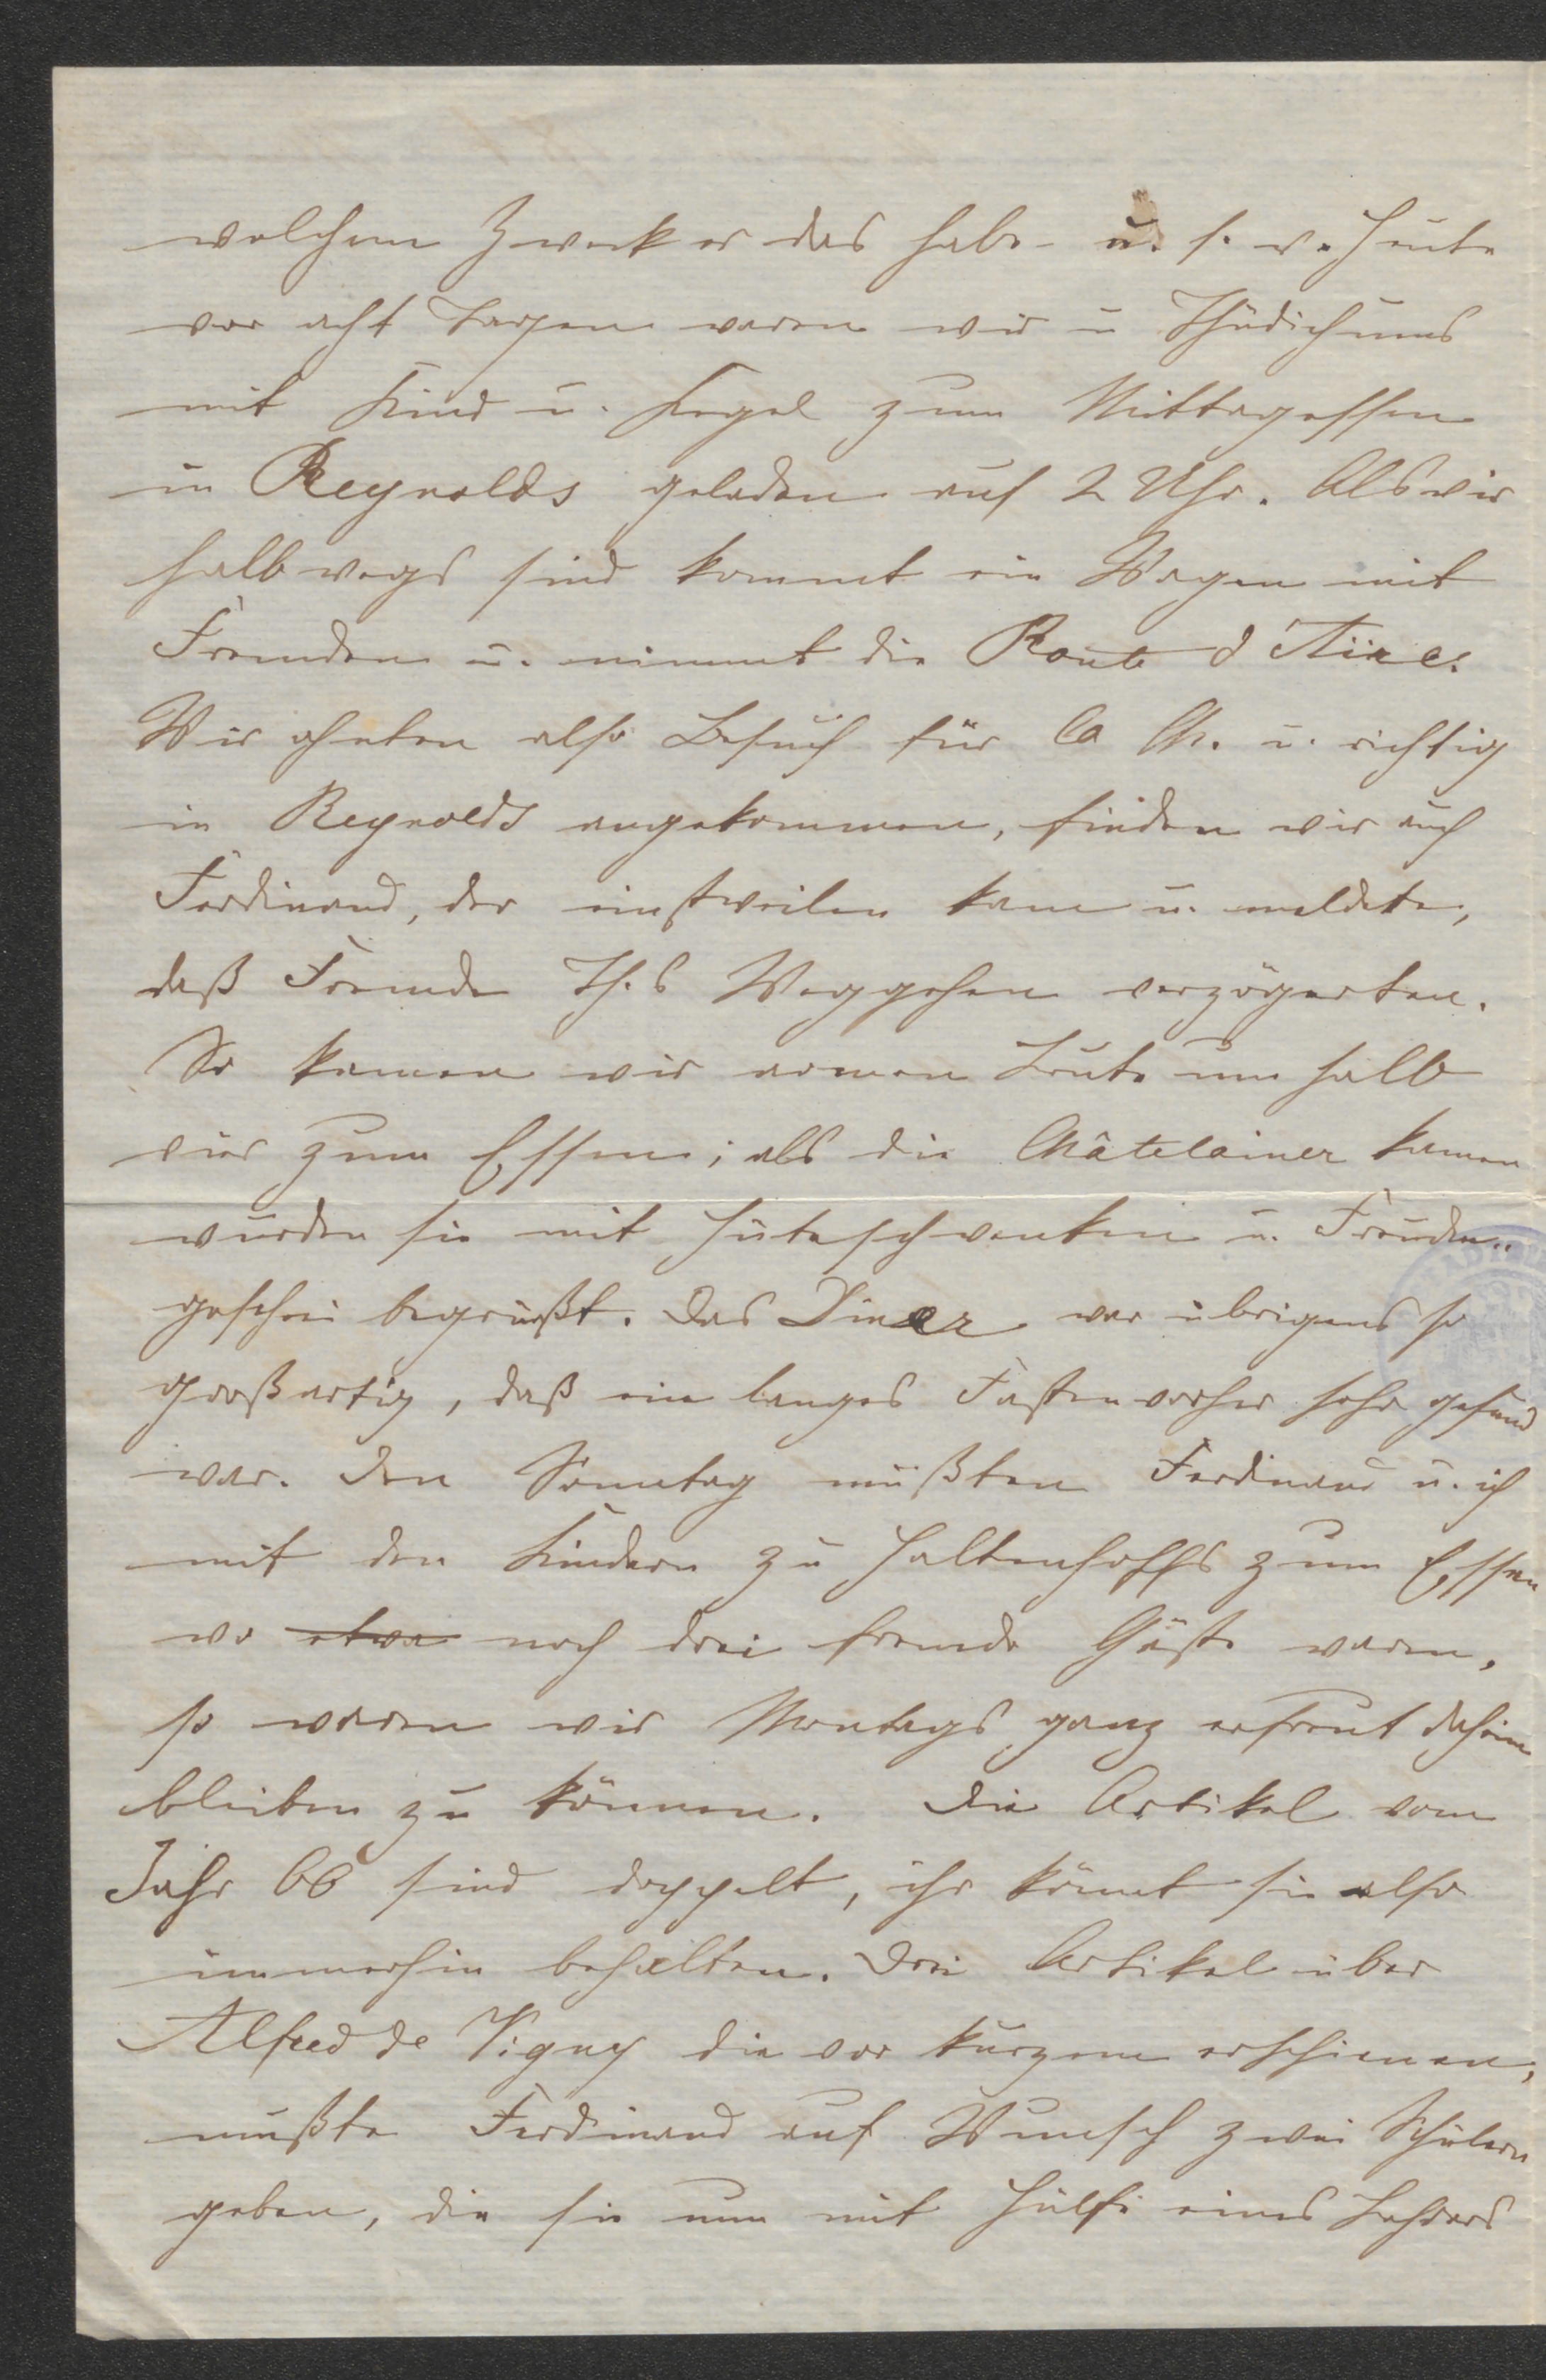 welchem Zweck er das habe - u. s. w. Heute
vor acht Tagen waren wir u Thudichums
mit Kind u. Kegel zum Mittagessen
in Reynolds geladen auf 2 Uhr. Als wir
halbwegs sind kommt ein Wagen mit
Fremden u. nimmt die Route d'Aïre.
Wir ahnten also Besuch für la Ch. u. richtig
in Reynolds angekommen, finden wir auch
Ferdinand, der einstweilen kam u. meldete,
daß Fremde Th.s Weggehen verzögerten.
So kamen wir armen Leute um halb
vier zum Essen; als die Châtelainer kamen
wurden sie mit Huteschwenken u. Freuden-
geschrei begrüßt. Das Diner war übrigens so
großartig, daß ein langes Fasten vorher sehr gesund
war. Den Sonntag mußten Ferdinand u. ich
mit den Kindern zu Haltenhoffs zum Essen
wo etwa noch drei fremde Gäste waren,
so waren wir Montags ganz erfreut daheim
bleiben zu können. Die Artikel vom
Jahr 66 sind doppelt, ihr könnt sie also
immerhin behalten. Drei Artikel über
Alfred de Vigny die vor kurzem erschienen,
mußte Ferdinand auf Wunsch zwei Schülern
geben, die sie nun mit Hülfe eines Lehrers